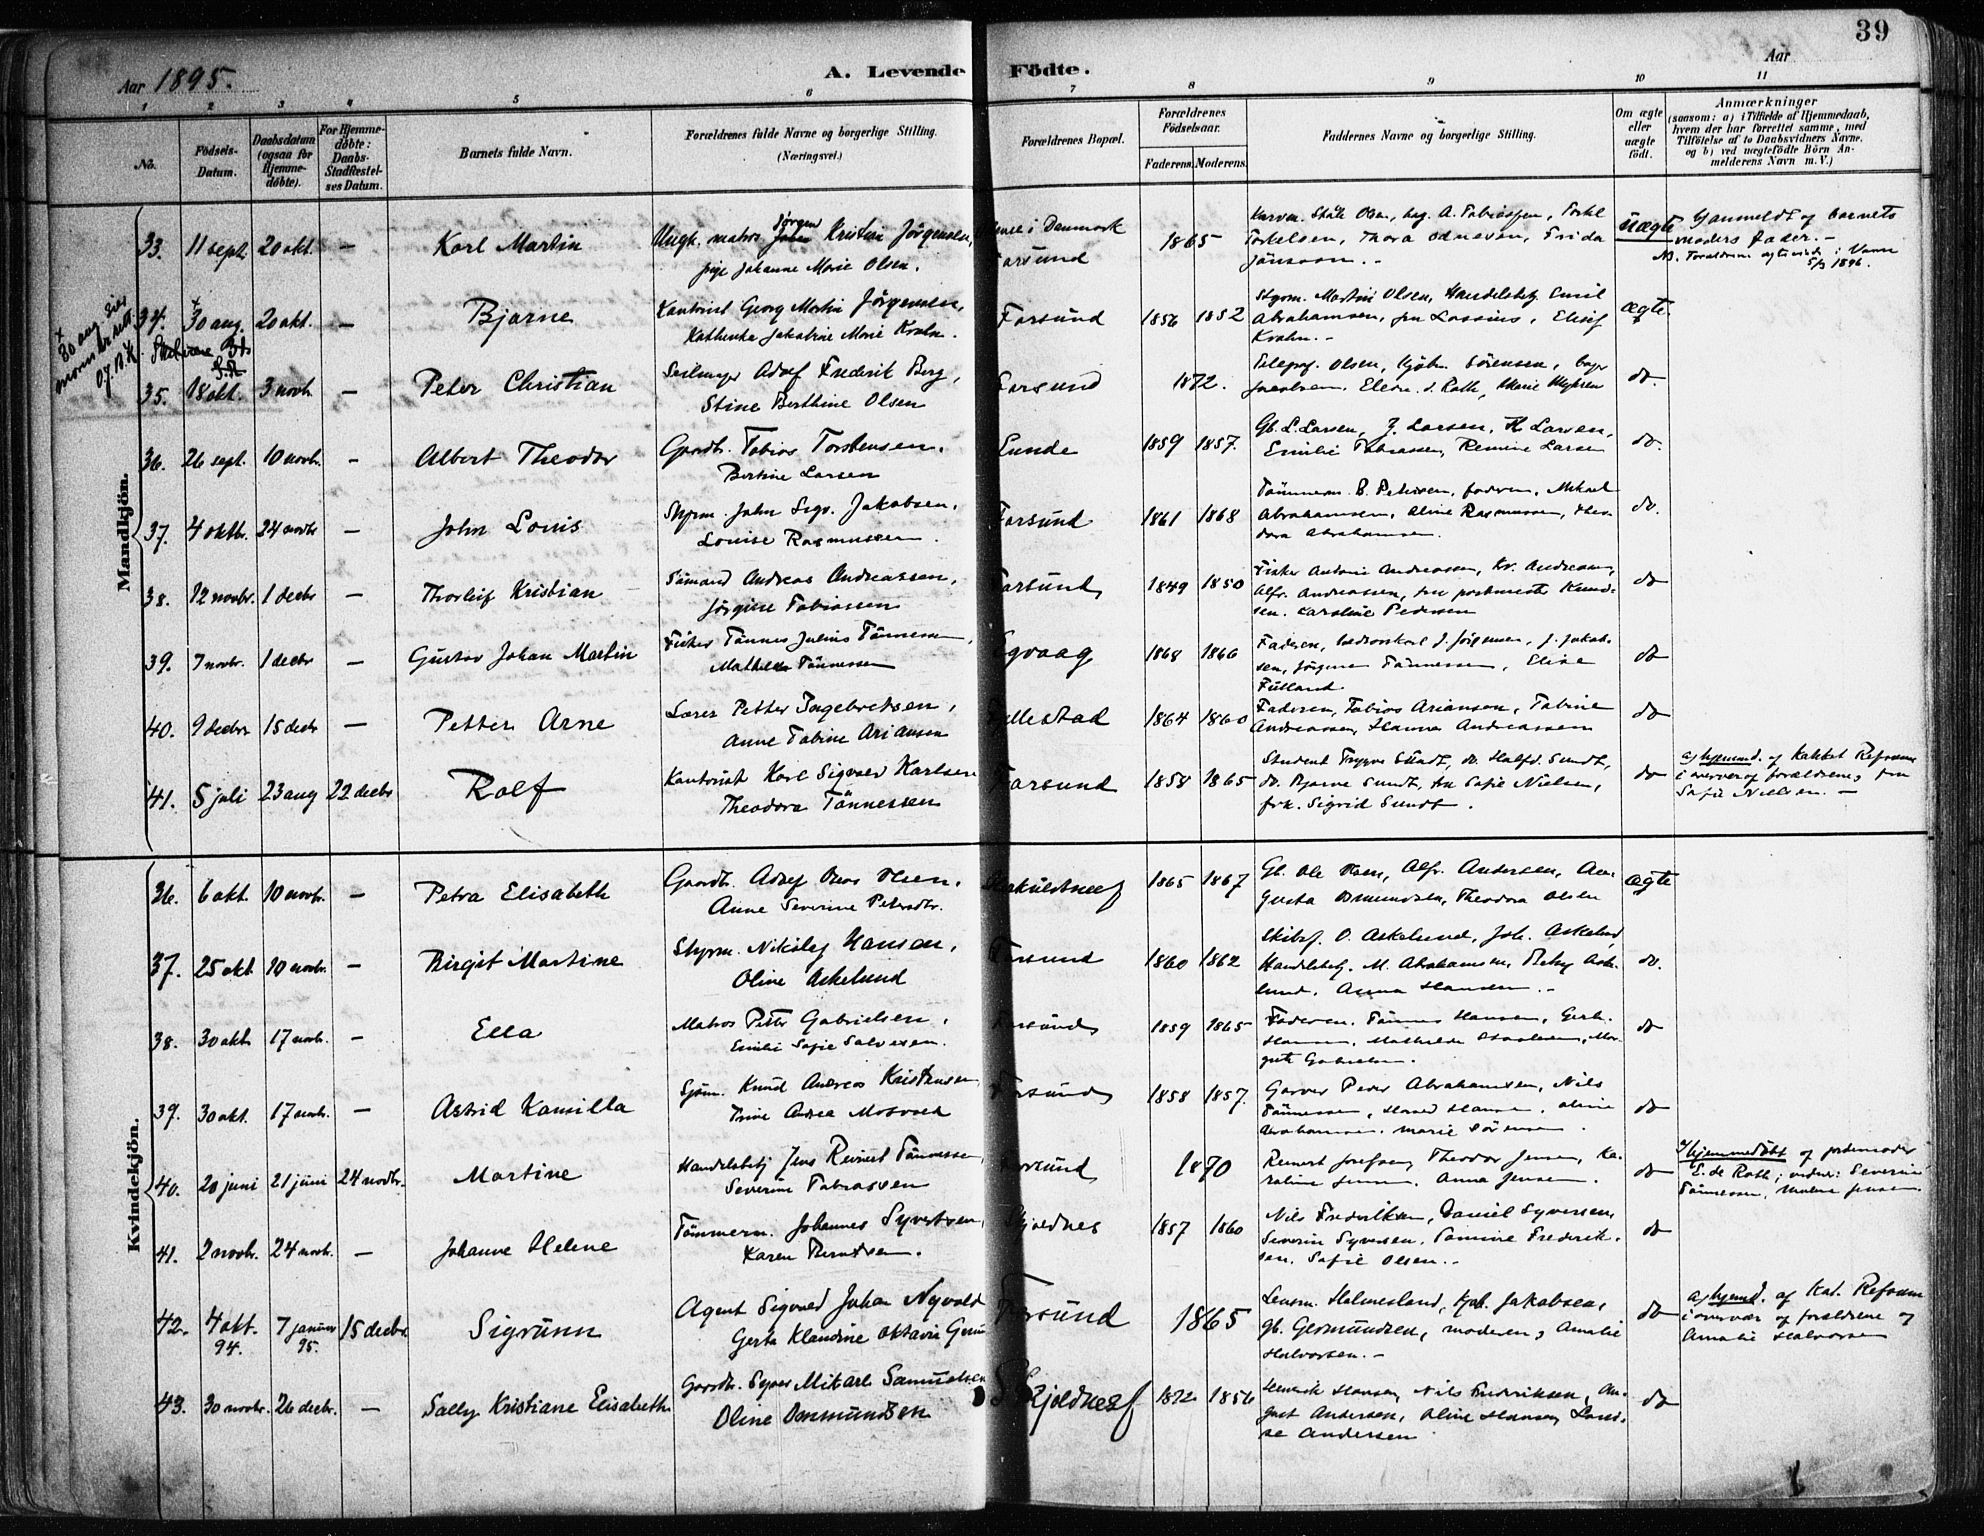 39
Aar 1895.
A. Levende Födte.
Aar
1 2 3 4 5 6 7 8 9 10 11
No.
Födsels-Datum.
Daabsdatum (ogsaa for Hjemme-döbte).
For Hjemme-döbte: Daabs-Stadfæstel-ses Datum.
Barnets fulde Navn.
Forældrenes fulde Navne og borgerlige Stilling.
(Næringsvei.)
Forældrenes Bopæl.
Forældrenes Födselsaar.
Faderens. Moderens.
Faddernes Navne og borgerlige Stilling.
Om ægte eller uægte födt.
Anmærkninger
(saasom: a) i Tilfælde af Hjemmedaab, hvem der har forrettet samme, med Tilföielse af to Daabsvidners Navne, og b) ved uægtefödte Börn An-melderens Navn m. V.)
Mandkjön.
33. 11 sept. 20 okt. — Karl Martin
Ungk. matros Jörgen Kristian Jörgensen,
pige Johanne Marie Olsen.
i Danmark
Farsund
1865
Olsen, A. Tobiassen,
Torkelsen, Thora Frida
uægte
barnets
moders fader. —
1896.
30 aug
34. 30 aug. 20 okt. — Bjarne
Kantorist Georg Martin Jörgensen,
Kathinka Jakobine Marie Krahn.
Farsund 1856 1852
Styrm. Martin Olsen, Handelsbetj. Emil
Abrahamsen, fru Lassius, Elisif
Krahn. —
ægte
35. 18 okt. 3 novbr. — Peter Christian
Seilmager Adolf Frederik Berg,
Stine Berthine Olsen
Farsund 1872.
Olsen, Sörensen,
Jacobsen, d. Rath, Marie
do.
36. 26 sept. 10 novbr. — Albert Theodor
Gaardbr. Tobias Torstensen.
Bertine Larsen
Lunde 1859 1857.
Gb. L. Larsen, J. Larsen, K Larsen,
Emilie Tobiassen, Larsen
do.
37. 4 oktbr. 24 novbr — John Louis
Styrm. John Sigv. Jakobsen.
Louise Rasmussen.
Farsund 1861 1868
Tömmerm. B. Petersen, faderen, Mikael
Abrahamsen, Aline Rasmussen, Theo-
dora Abrahamsen.
do.
38. 12 novbr. 1 decbr — Thorleif Kristian
Sömand Andreas Andreassen,
Jörgine Tobiassen
Farsund 1849 1850
Fisker Antoni Andreassen, Kr. Andreassen,
Alfr. Andreassen, fru Knud-
sen. Karoline Pedersen
do
39. 7 novbr. 1 decbr — Gustav Johan Martin
Fisker Tönnes Julius Tönnessen,
Mathilde Tönnessen
Egvaag 1868 1866
Faderen, J. Jörgensen, J. Jakob-
sen, Jörgine Tönnessen, Elise
Fulland.
do
40. 9 decbr 15 decbr — Petter Arne
Lærer Petter Ingebretsen,
Anne Tobine Ariansen
1864 1860
Faderen, Tobias Ariansen, Tobine
Andreassen, Hanna Andreassen
do
41. 5 juli 23 aug 22 decbr Rolf
Kantorist Karl Sigvald Karlsen
Theodora Tönnessen
Farsund 1858 1865
Student Trygve Sundt, do. Halfd. Sundt,
do. Bjarne Sundt, fru Sofie Nielsen,
frk. Sigrid Sundt.
do
a) hjemmed. af Kateket
i overvær af forældrene, fru
Sofie Nielsen. —
Kvindekjön.
36. 6 okt. 10 novbr. — Petra Elisabeth
Gaardbr. Adolf Olsen.
Anne Severine Petersdtr.
1865 1867
Gb. Ole Alfr. Andersen, Au-
gusta Osmundsen, Theodora Olsen
ægte
37. 25 okt 10 novbr. — Birgit Martine
Styrm. Nikolaj Hansen,
Oline Askelund
Farsund 1860 1862
Skibsf. O. Askelund, Joh. Askelund,
Handelsbetj. M. Abrahamsen, Betzy Aske-
lund, Anna Hansen. —
do.
38. 30 okt 17 novbr. — Ella
Matros Peter Gabrielsen,
Emilie Sofie Salvesen.
Farsund 1859 1865
Faderen. Tönnes Hansen, Gerh.
Hansen, Mathilde Mar-
grete Gabrielsen.
do
39. 30 okt. 17 novbr. — Astrid Kamilla
Sjöm. Knud Andreas Kristensen
Trine Andrea Mosvold
Farsund 1858 1857.
Garver Peder Abrahamsen, Nils
Tönnessen, Harald Hansen, Aline
Abrahamsen. Marie Sörensen.
do
40. 20 juni 21 juni 24 novbr. Martine
Handelsbetj Jens Reinert Tönnessen,
Severine Tobiassen
Farsund 1870
Reinert Josefsen, Theodor Jensen, Ka-
roline Jensen. Anna Jensen.
do
a) hjemmedöbt af jordemoder
E. de Rath; vidner: Severin
Tönnessen, Malene Jensen
41. 2 novbr. 24 novbr. — Johanne Helene
Tömmerm. Johannes Syvertsen,
Karen Berntsen.
Skjoldnes 1857 1860
Nils Frederiksen, Daniel Syversen,
Severin Syversen, Frederik-
sen. Sofie Olsen. —
do
42. 4 okt. 94. 7 januar 95. 15 decbr. Sigrunn
Agent Sigvald Johan Nyvold
Gerta Klaudine Oktavia
Farsund 1865
Lensm. Holmesland, kjöb. Jakobsen,
gb. Germundsen, moderen, Amalie
Halvorsen. —
do
a) hjemmd. af Kat.
i overvær af forældrene og
Amalie Halvorsen
43. 30 novbr. 26 decbr. — Sally Kristiane Elisabeth
Gaardbr. Mikael Samuelsen
Oline Osmundsen
Skjoldnes 1872 1856
Henrik Hansen, Nils Fredriksen, Au-
gust Andersen, Oline Hansen, Loui-
se Andersen
do